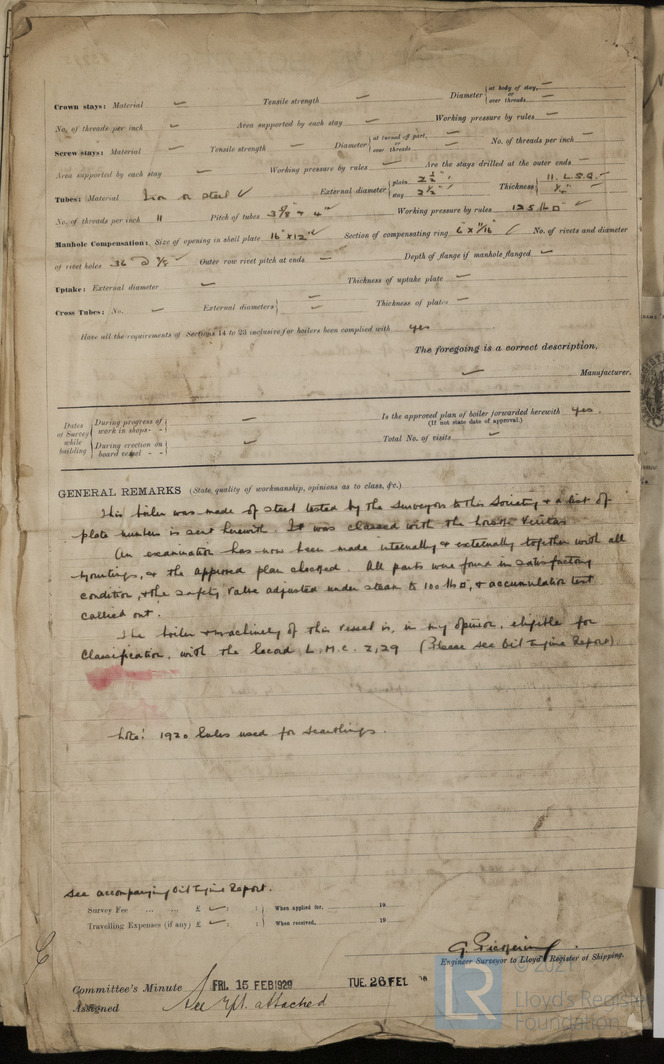 Crown stays: Material — Tensile strength — Diameter { at body of stay, — or over threads —
No. of threads per inch — Area supported by each stay — Working pressure by rules —
Screw stays: Material — Tensile strength — Diameter { at turned off part, — or over threads — No. of threads per inch —
Area supported by each stay — Working pressure by rules — Are the stays drilled at the outer ends —
Tubes: Material Iron or steel ✓ External diameter { plain 2 1/2" stay 2 1/2" Thickness { 11. L.S.G. 1/4"
No. of threads per inch 11 Pitch of tubes 3 5/8" & 4" Working pressure by rules 125 lb □"
Manhole Compensation: Size of opening in shell plate 16" x 12" Section of compensating ring 6" x 11/16" No. of rivets and diameter
of rivet holes 36 @ 7/8" Outer row rivet pitch at ends — Depth of flange if manhole flanged —
Uptake: External diameter — Thickness of uptake plate —
Cross Tubes: No. — External diameters { — — Thickness of plates —
Have all the requirements of Sections 14 to 23 inclusive for boilers been complied with yes
The foregoing is a correct description,
Manufacturer.
Dates of Survey while building { During progress of work in shops - - — During erection on board vessel - - —
Is the approved plan of boiler forwarded herewith yes.
(If not state date of approval.)
Total No. of visits —
GENERAL REMARKS (State quality of workmanship, opinions as to class, &c.)
This boiler was made of steel tested by the Surveyors to this Society & a list of
plate numbers is sent herewith. It was classed with the Veritas
An examination has now been made internally & externally together with all
mountings, & the approved plan checked. All parts were found in satisfactory
condition, & the safety valve adjusted under steam to 100 lb □", & accumulation test
carried out.
The boiler & machinery of this vessel is, in my opinion, eligible for
Classification, with the record L.M.C. 2,29 (Please see Oil Engine Report).
Note: 1920 Rules used for scantlings.
See accompanying Oil Engine Report.
Survey Fee ... ... £ — : : } When applied for, 19
Travelling Expenses (if any) £ — : : } When received, 19
G. Pickering.
Engineer Surveyor to Lloyd's Register of Shipping.
Committee's Minute FRI. 15 FEB 1929 TUE. 26 FEB
Assigned See rpt. attached
LR © 2021
Lloyd's Register
Foundation